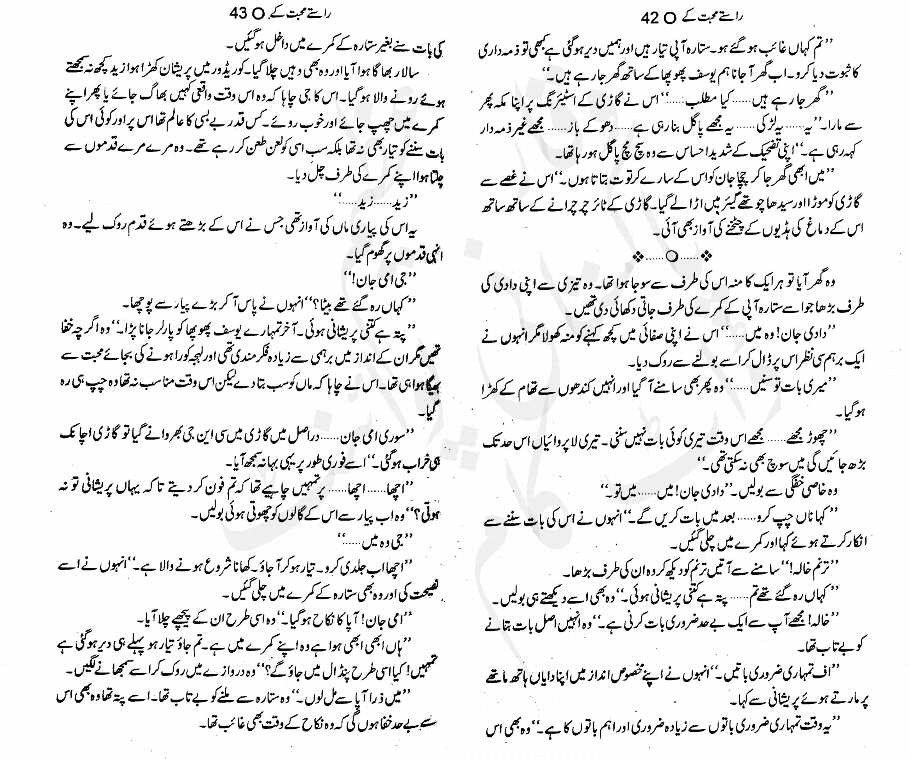 راستے محبت کے 42
”تم کہاں غائب ہو گئے ہو۔ ستارہ آپی تیار ہیں اور ہمیں دیر ہو گئی ہے کبھی تو ذمہ داری
کا ثبوت دیا کرو۔ اب گھر آ جانا ہم یوسف پھوپھا کے ساتھ گھر جا رہے ہیں۔“
”گھر جا رہے ہیں...... کیا مطلب......“ اس نے گاڑی کے اسٹیئرنگ پر اپنا مکہ پھر
سے مارا۔ ”یہ...... یہ لڑکی...... یہ مجھے پاگل بنا رہی ہے...... دھوکے باز...... مجھے غیر ذمہ دار
کہہ رہی ہے۔“ اپنی تضحیک کے شدید احساس سے وہ سچ مچ پاگل ہو رہا تھا۔
”میں ابھی گھر جا کر چچا جان کو اس کے سارے کرتوت بتاتا ہوں۔“ اس نے غصے سے
گاڑی کو موڑا اور سیدھا چوتھے گیئر میں اڑا لے گیا۔ گاڑی کے ٹائر چرچرانے کے ساتھ ساتھ
اس کے دماغ کی ہڈیوں کے چٹخنے کی آواز بھی آئی۔
❖......O......❖
وہ گھر آیا تو ہر ایک کا منہ اس کی طرف سے سوجا ہوا تھا۔ وہ تیزی سے اپنی دادی کی
طرف بڑھا جو اسے ستارہ آپی کے کمرے کی طرف جاتی دکھائی دی تھیں۔
”دادی جان! وہ میں......“ اس نے اپنی صفائی میں کچھ کہنے کو منہ کھولا مگر انہوں نے
ایک برہم سی نظر اس پر ڈال کر اسے بولنے سے روک دیا۔
”میری بات تو سنیں......“ وہ پھر بھی سامنے آ گیا اور انہیں کندھوں سے تھام کے کھڑا
ہو گیا۔
”چھوڑ مجھے...... مجھے اس وقت تیری کوئی بات نہیں سننی۔ تیری لاپروائیاں اس حد تک
بڑھ جائیں گی میں سوچ بھی نہ سکتی تھی۔“
وہ خاصی خفگی سے بولیں۔ ”دادی جان! میں...... میں تو۔“
”کہا ناں چپ کرو...... بعد میں بات کریں گے۔“ انہوں نے اس کی بات سننے سے
انکار کرتے ہوئے کہا اور کمرے میں چلی گئیں۔
”ترنم خالہ!“ سامنے سے آتیں ترنم کو دیکھ کر وہ ان کی طرف بڑھا۔
”کہاں رہ گئے تھے تم...... پتہ ہے کتنی پریشانی ہوئی۔“ وہ بھی اسے دیکھتے ہی بولیں۔
”خالہ! مجھے آپ سے ایک بے حد ضروری بات کرنی ہے۔“ وہ انہیں اصل بات بتانے
کو بے تاب تھا۔
”اف تمہاری ضروری باتیں۔“ انہوں نے اپنے مخصوص انداز میں اپنا دایاں ہاتھ ماتھے
پر مارتے ہوئے پریشانی سے کہا۔
”یہ وقت تمہاری ضروری باتوں سے زیادہ ضروری اور اہم باتوں کا ہے۔“ وہ بھی اس
راستے محبت کے 43
کی بات سنے بغیر ستارہ کے کمرے میں داخل ہو گئیں۔
سالار بھاگا ہوا آیا اور وہ بھی وہیں چلا گیا۔ کوریڈور میں پریشان کھڑا ہوا زید کچھ نہ سمجھتے
ہوئے رونے والا ہو گیا۔ اس کا جی چاہا کہ وہ اس وقت واقعی کہیں بھاگ جائے یا پھر اپنے
کمرے میں چھپ جائے اور خوب روئے۔ کس قدر بے بسی کا عالم تھا اس پر اور کوئی اس کی
بات سننے کو تیار بھی نہ تھا بلکہ سب اسی کو لعن طعن کر رہے تھے۔ وہ مرے مرے قدموں سے
چلتا ہوا اپنے کمرے کی طرف چل دیا۔
”زید...... زید......“
یہ اس کی پیاری ماں کی آواز تھی جس نے اس کے بڑھتے ہوئے قدم روک لیے۔ وہ
انہی قدموں پر گھوم گیا۔
”جی امی جان!“
”کہاں رہ گئے تھے بیٹا؟“ انہوں نے پاس آ کر بڑے پیار سے پوچھا۔
”پتہ ہے کتنی پریشانی ہوئی۔ آخر تمہارے یوسف پھوپھا کو پارلر جانا پڑا۔“ وہ اگرچہ خفا
تھیں مگر ان کے انداز میں برہمی سے زیادہ فکرمندی تھی اور لہجہ کورا ہونے کی بجائے محبت سے
بھیگا ہوا ہی تھا۔ اس نے چاہا کہ ماں کو سب بتا دے لیکن اس وقت مناسب نہ تھا وہ چپ ہی رہ
گیا۔
”سوری امی جان...... دراصل میں گاڑی میں سی این جی بھروانے گیا تو گاڑی اچانک
ہی خراب ہو گئی۔“ اسے فوری طور پر یہی بہانہ سمجھ آیا۔
”اچھا...... اچھا...... پر تمہیں چاہیے تھا کہ تم فون کر دیتے تا کہ یہاں پریشانی تو نہ
ہوتی؟“ وہ اب پیار سے اس کے گالوں کو چھوتی ہوئی بولیں۔
”جی وہ میں......“
”اچھا اب جلدی کرو۔ تیار ہو کر آ جاؤ۔ کھانا شروع ہونے والا ہے۔“ انہوں نے اسے
نصیحت کی اور وہ بھی ستارہ کے کمرے میں چلی گئیں۔
”امی جان! آپا کا نکاح ہو گیا۔“ وہ اسی طرح ان کے پیچھے چلا آیا۔
”ہاں ابھی ابھی ہوا ہے وہ اپنے کمرے میں ہے۔ تم جاؤ تیار ہو پہلے ہی دیر ہو گئی ہے
تمہیں! کیا اسی طرح پنڈال میں جاؤ گے؟“ وہ دروازے میں روک کر اسے سمجھانے لگیں۔
”میں ذرا آپا سے مل لوں۔“ وہ ستارہ سے ملنے کو بے تاب تھا۔ اسے پتہ تھا وہ بھی اس
سے بے حد خفا ہوں گی کہ وہ نکاح کے وقت بھی غائب تھا۔